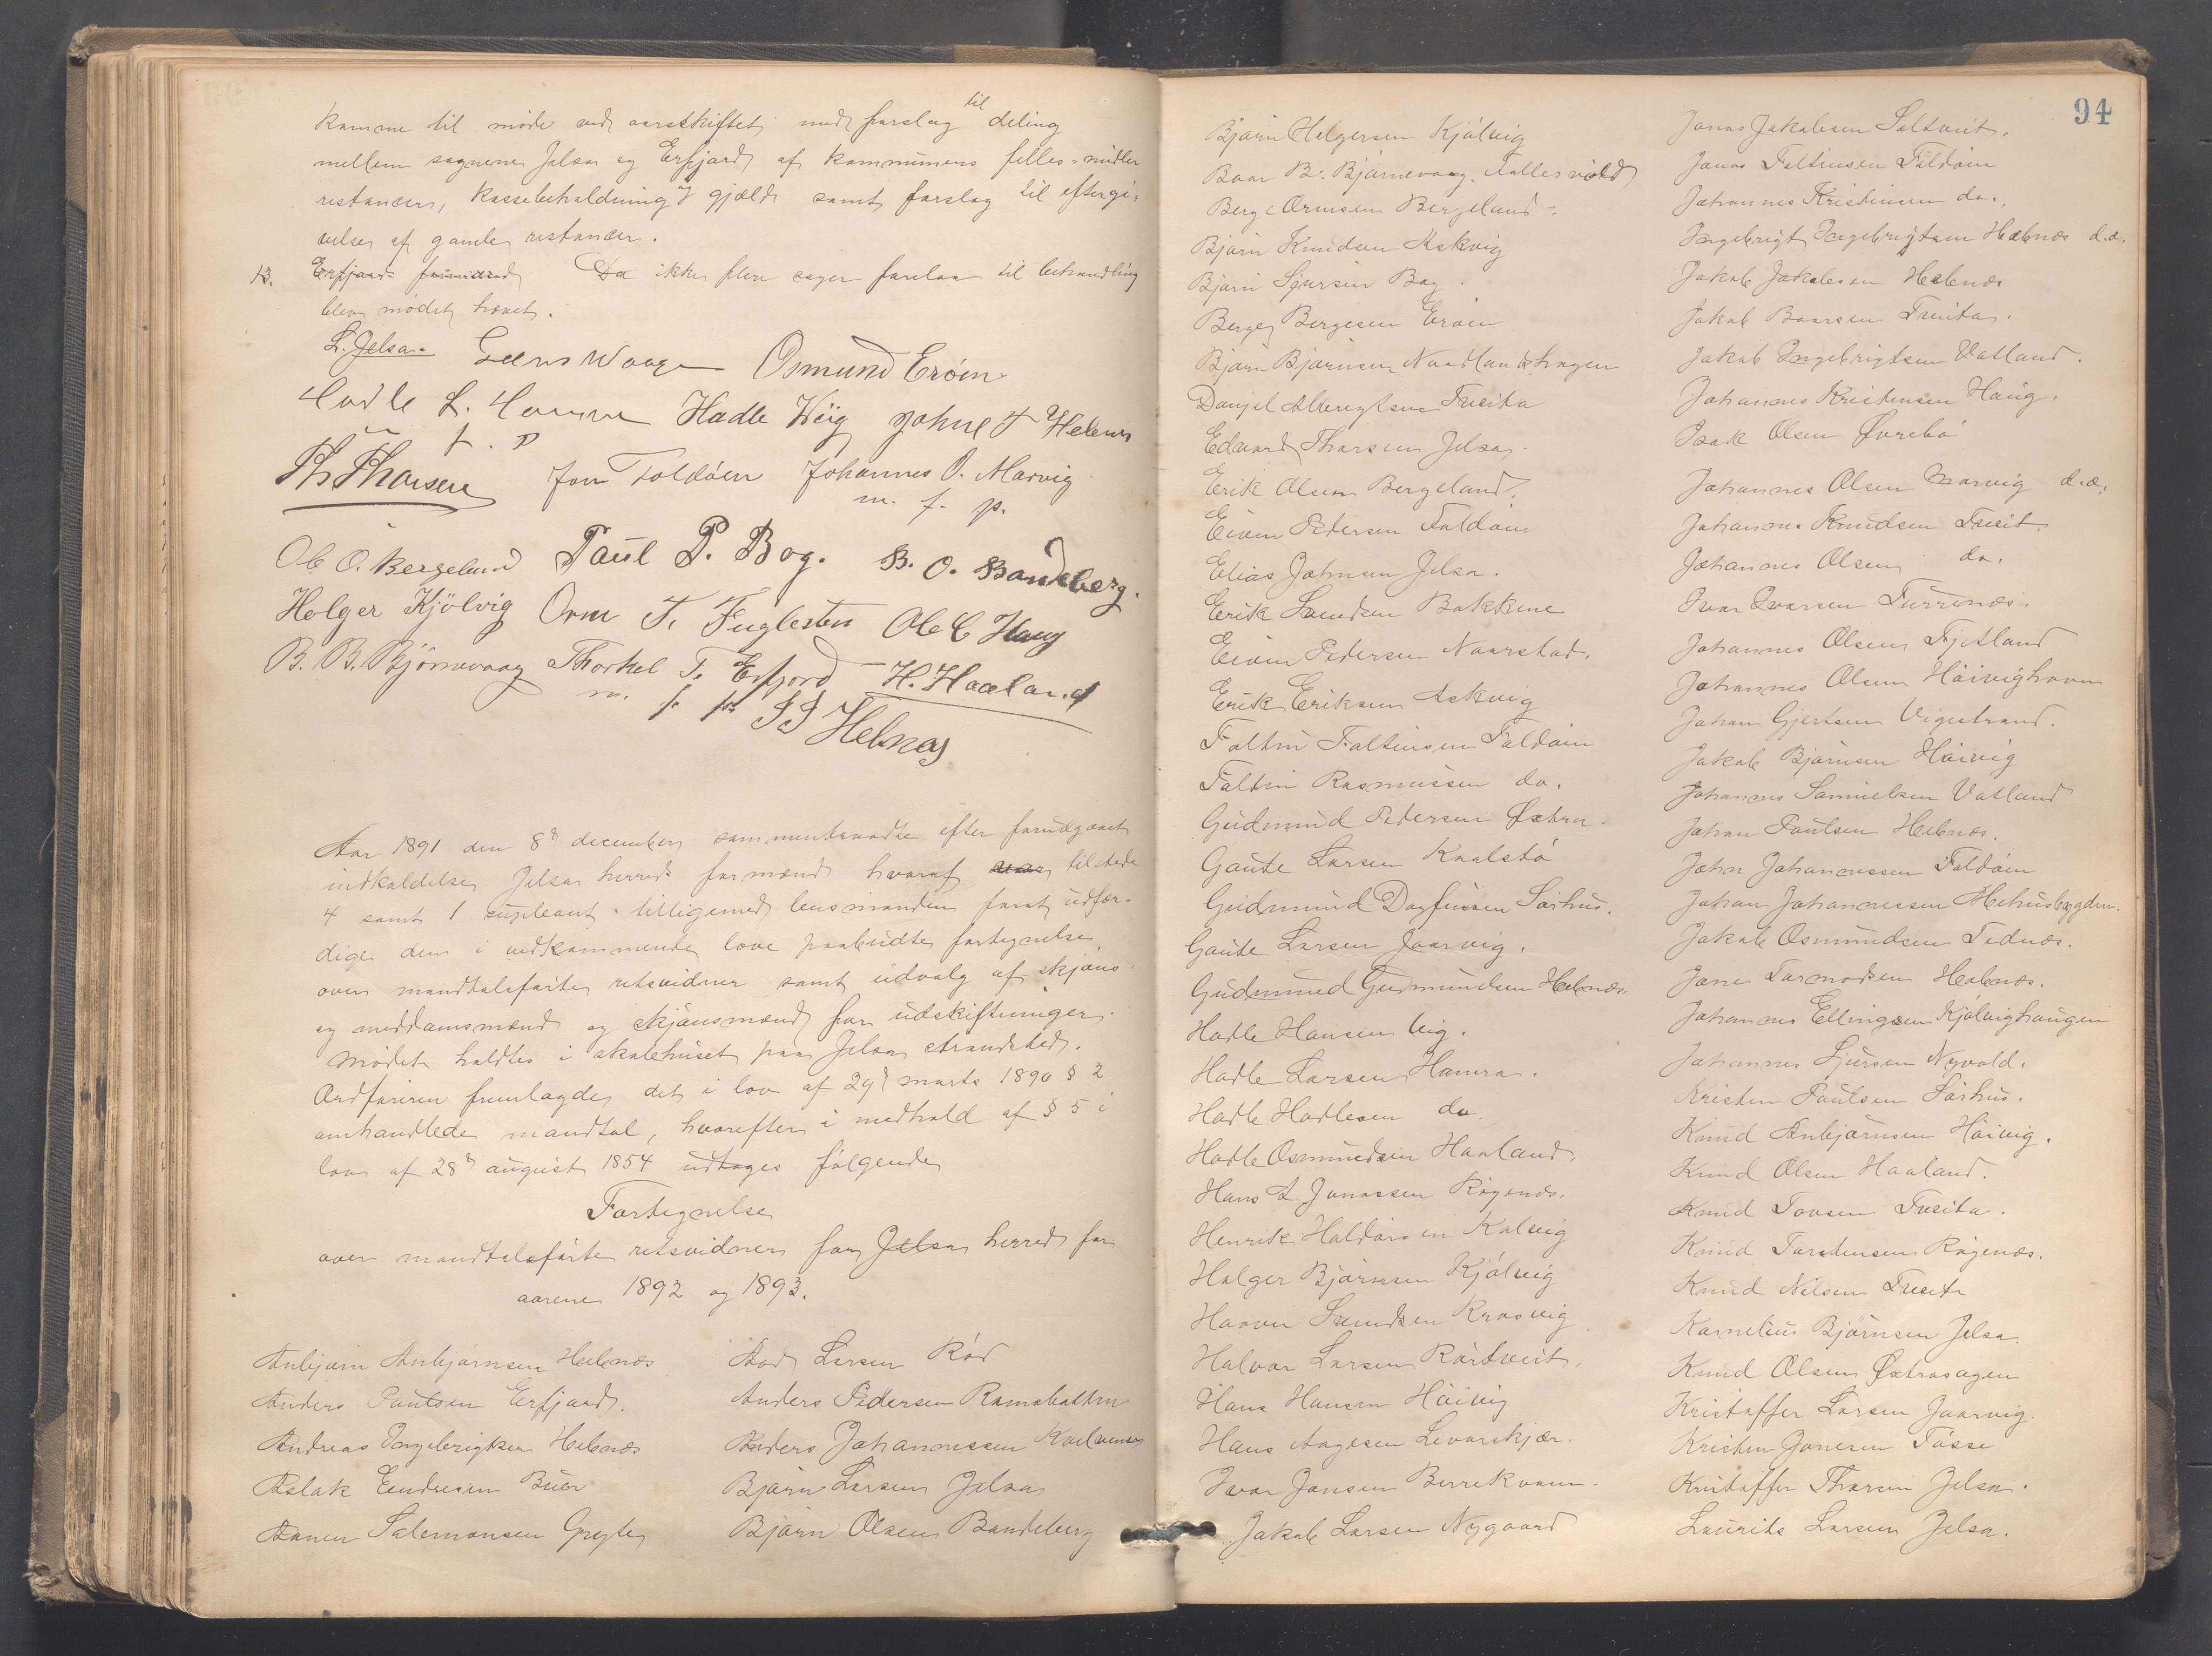 komme til møde ved aarsskiftet med forslag til deling
mellem sognene Jelsa og Erfjord af kommunens felles-midler
restancer, kassebeholdning og gjæld samt forslag til eftergi-
velse af gamle restancer.
13. Erfjord Da ikke flere sager forelaa til behandling
blev mødet hævet.
L. Jelsa Osmund Erøen
Hadle L. Hadle Wiig John T Helnes
Th Thorsen Jon Foldøen Johannes O. Marvig
m. f. p.
Ole O. Bergeland Paul P. Bog. B. O. Bandeberg.
Holger Kjölvig Orm T. Fuglesten Ole C Haug
B. B. Björnevaag Thorkel T. Erfjord H. Haaland
m. f. p. Helnæs
Aar 1891 den 8de december sammentraadte efter forudgaaet
indkaldelse Jelsa herreds formænd hvoraf var tilstede
4 samt 1 supleant tilligemed lensmanden forat udfær-
dige den i vedkommende love paabudte fortegnelse
over mandtalsførte retsvidner samt udvalg af skjøns-
og meddomsmænd og skjønsmænd for udskiftninger.
Mødet holdtes i skolehuset paa Jelsa strandsted.
Ordføreren fremlagde det i lov af 29de marts 1890 § 2
omhandlede mandtal, hvorefter i medhold af § 5 i
lov af 28de august 1854 udtoges følgende
Fortegnelse
over mandtalsførte retsvidner for Jelsa herred for
aarene 1892 og 1893.
Anbjørn Anbjørnsen Hebnæs
Anders Paulsen Erfjord.
Andreas Ingebrigtsen Hebnæs
Aslak Endresen Buer
Aanen Salemonsen
Aad Larsen Rød
Anders Pedersen Ramsbotten
Anders Johannessen
Bjørn Larsen Jelsa
Bjørn Olsen Bandeberg
94
Bjørn Helgersen Kjølvig
Baar B. Bjørnevaag
Berge Ormsen Bergeland
Bjørn Knudsen Askvig
Bjørn Sjursen Bog.
Berge Bergesen Erøen
Bjørn Bjørnsen Naadlandshagen
Danjel Albregtsen Tveita
Edvard Thorsen Jelsa.
Erik Olsen Bergeland.
Eivin Pedersen Foldøen
Elias Johnsen Jelsa.
Erik Svendsen Bakkene
Eivin Pedersen Naarstad.
Erik Eriksen Askvig
Foltin Foltinsen Foldøen
Foltin Rasmussen do.
Gudmund Pedersen Østra.
Gaute Larsen Kaalstø
Gudmund Dagfinsen Sørhus.
Gaute Larsen Jaarvig.
Gudmund Gudmundsen Hebnæs
Hadle Hansen Vig.
Hadle Larsen Hamra.
Hadle Hadlesen do.
Hadle Osmundsen Haaland.
Hans L Jonassen Røgenæs.
Henrik Haldorsen Kalvig
Holger Bjørnsen Kjølvig
Haaver Svendsen Krosvig
Halvor Larsen Rørtveit.
Hans Hansen Høivig
Hans Aagesen Levarskjær.
Ivar Jonsen Berrekvam.
Jakob Larsen Nygaard
Jonas Jakobsen Saltveit.
Jonas Foltinsen Foldøen
Johannes Kristensen do.
Ingebrigt Ingebrigtsen Hebnæs d.æ.
Jakob Jakobsen Hebnæs
Jakob Baarsen Tveita.
Jakob Ingebrigtsen Vatland.
Johannes Kristensen Haug.
Isak Olsen Øvrebø
Johannes Olsen Marvig d.æ.
Johannes Knudsen Tveit
Johannes Olsen do.
Ivar Ivarsen Turrenæs.
Johannes Olsen Fjetland
Johannes Olsen Høivighavn
Johan Gjertsen Vigestrand.
Jakob Bjørnsen Høivig
Johannes Samuelsen Vatland
Johan Paulsen Hebnæs.
John Johannessen Foldøen
Johan Johannessen Mehusbygden.
Jakob Osmundsen Tednæs.
Jone Tormodsen Hebnæs.
Johannes Ellingsen Kjølvighaugen
Johannes Sjursen Nyvold.
Kristen Paulsen Sørhus.
Knud Anbjørnsen Høivig.
Knud Olsen Haaland.
Knud Tovsen Tveita.
Knud Torstensen Røgenæs.
Knud Nilsen Tveita
Kornelius Bjørnsen Jelsa
Knud Olsen Østrasagen
Kristoffer Larsen Jaarvig.
Kristen Jonesen Tøsse
Kristoffer Thorsen Jelsa.
Laurits Larsen Jelsa.